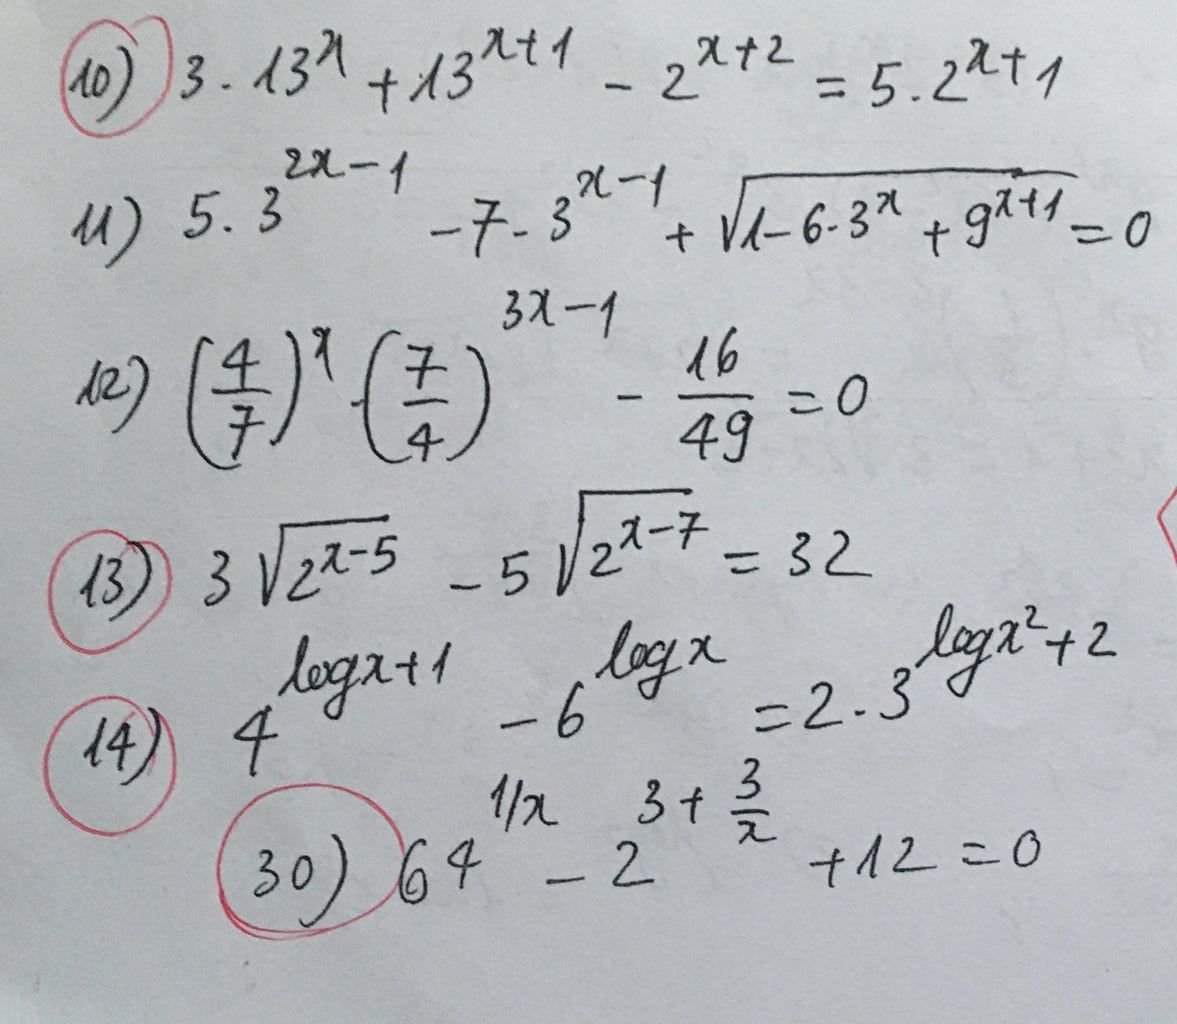 10) 3 · 13^x + 13^(x+1) - 2^(x+2) = 5 . 2^(x+1)
11) 5. 3^(2x-1) - 7 - 3^(x-1) + √(1 - 6 · 3^x + 9^(x+1)) = 0
12) (4/7)^x · (7/4)^(3x-1) - 16/49 = 0
13) 3 √(2^(x-5)) - 5 √(2^(x-7)) = 32
14) 4^(log x+1) - 6^(log x) = 2 · 3^(log x² + 2)
30) 64^(1/x) - 2^(3 + 3/x) + 12 = 0